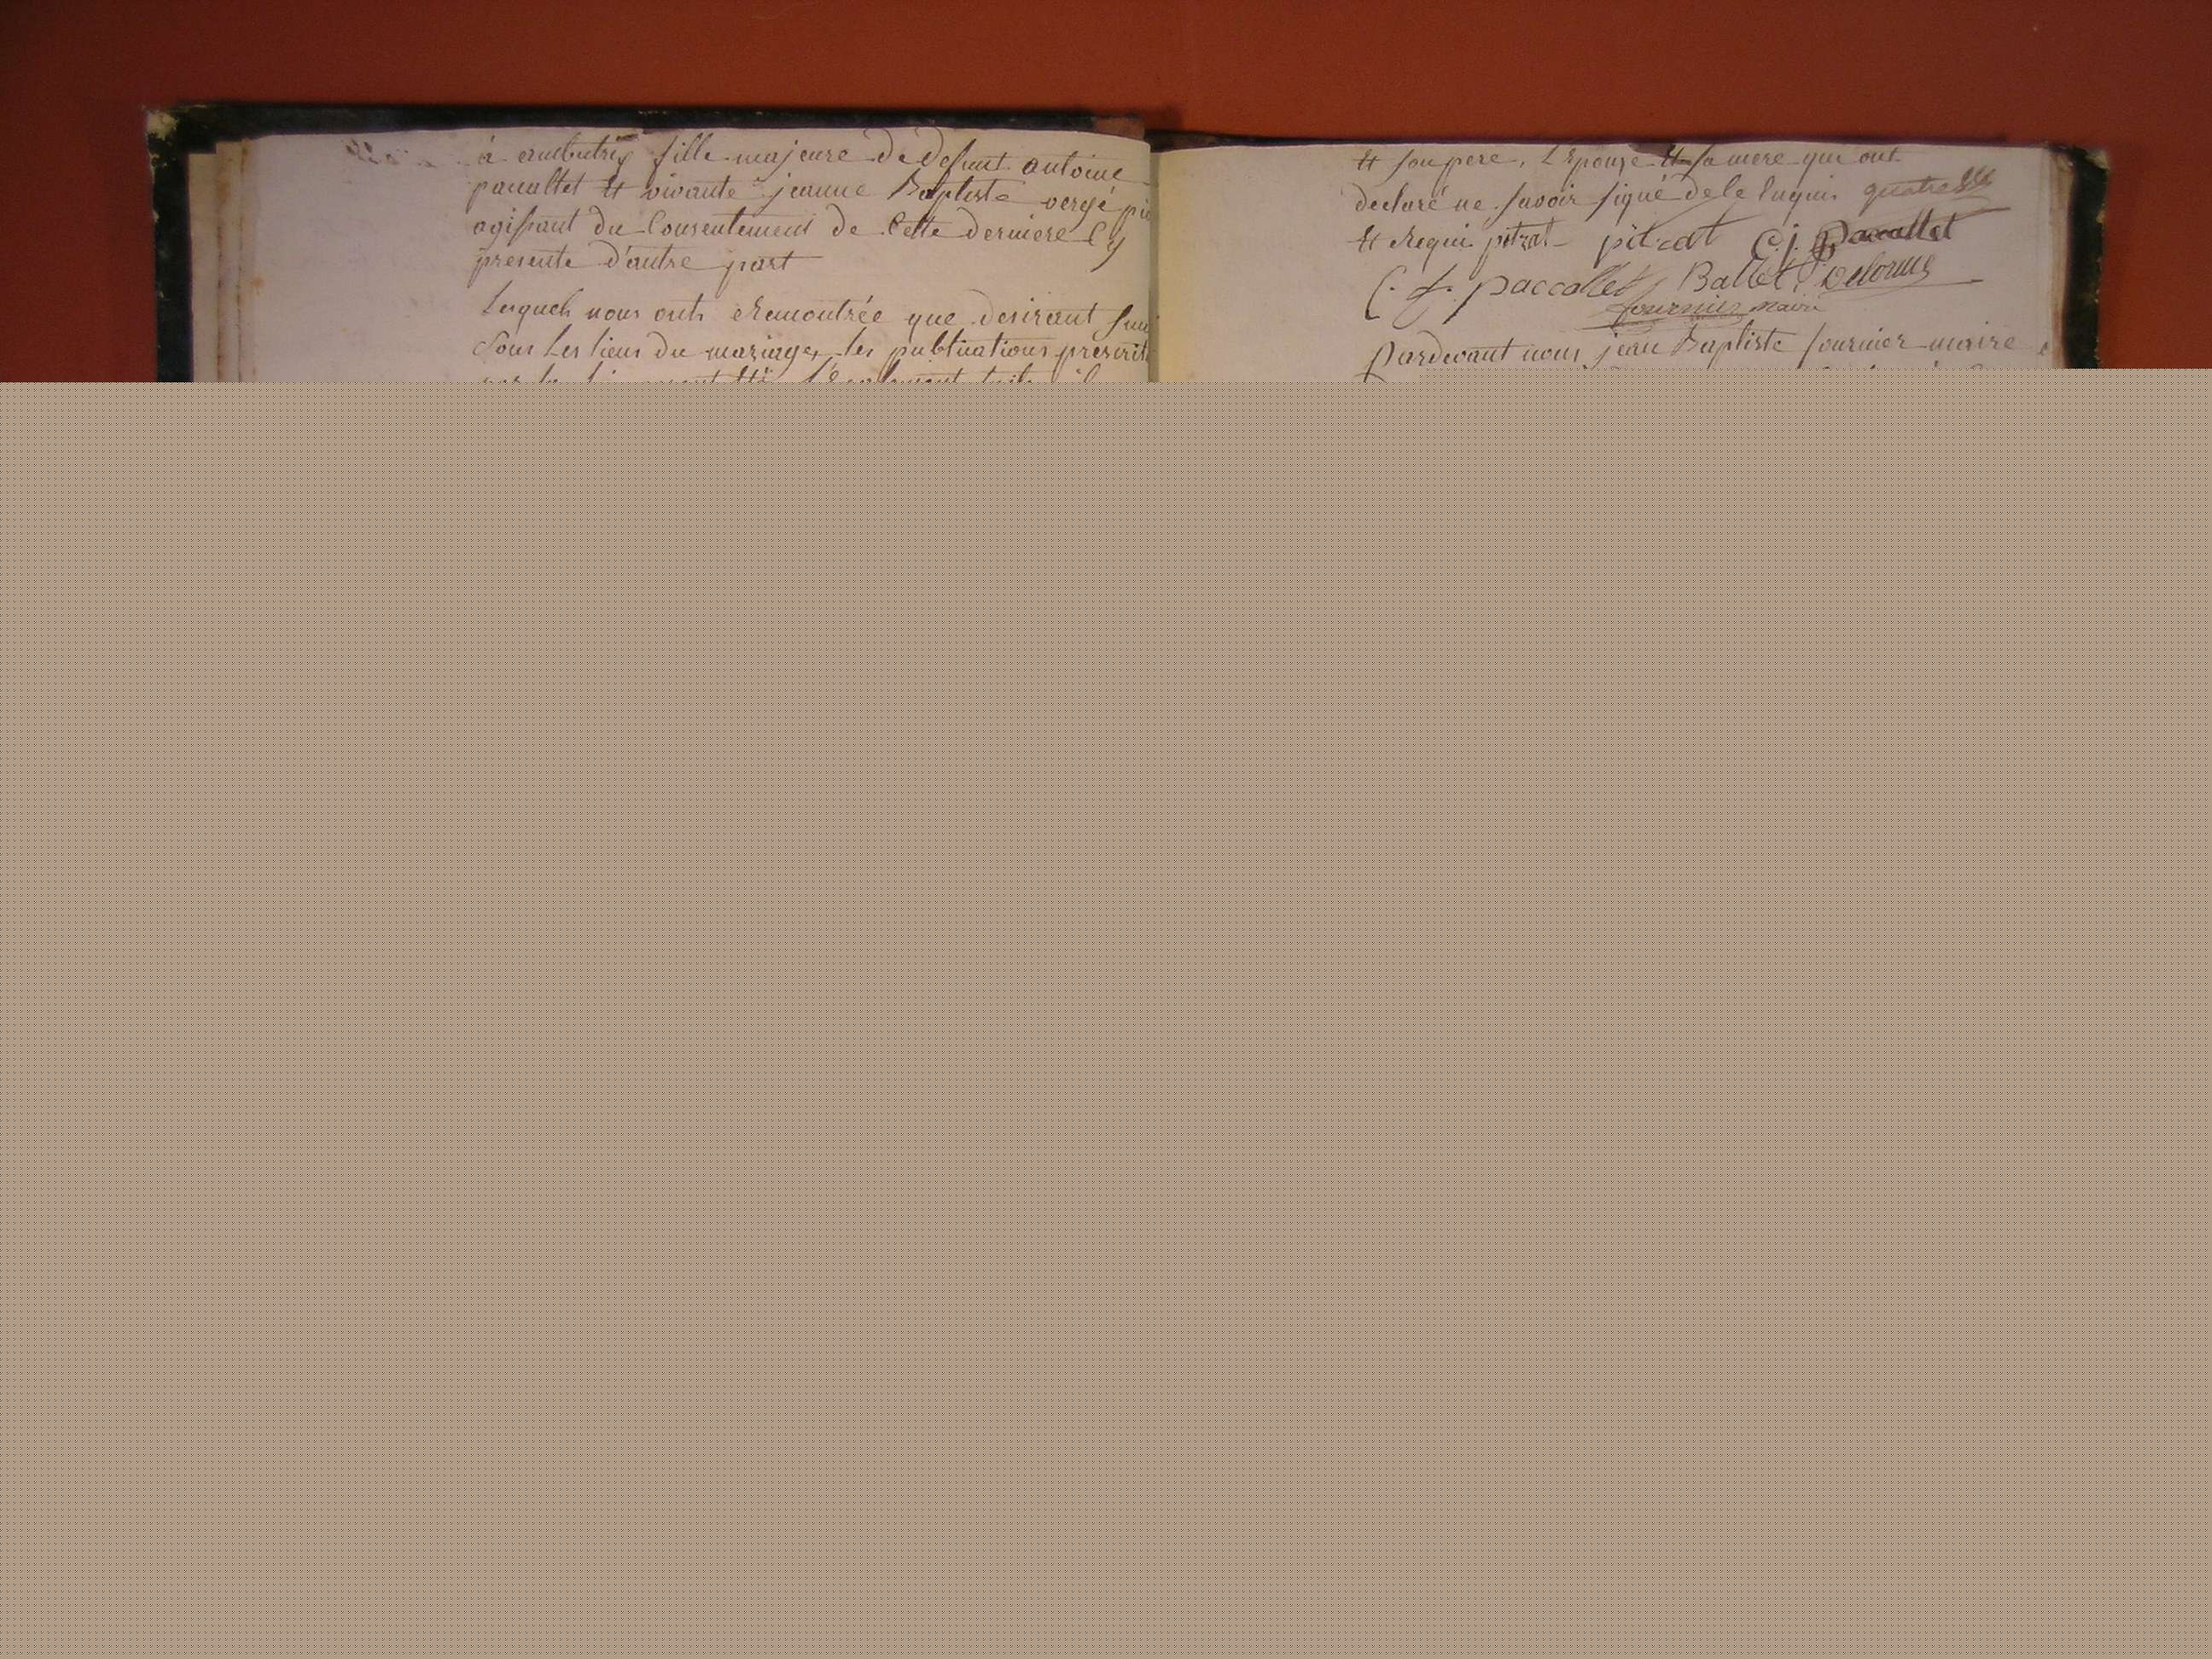 à ambutrix fille majeure de defunt antoine
pacallet Et vivante jeanne Baptiste vergé
agissant du Consentement de Cette derniere Cy
presente d'autre part
Lesquels nous onts Remontrée que desirant
Sous Les liens du mariage, les publications prescrit
Et son pere, L'Epouse Et sa mere qui ont
declaré ne savoir signé de le Enquis
Et Requi pitrat pitrat C. j. pacallet
C. f. paccallet Ballet Delorme
fournier maire
Pardevant nous jean Baptiste fournier maire